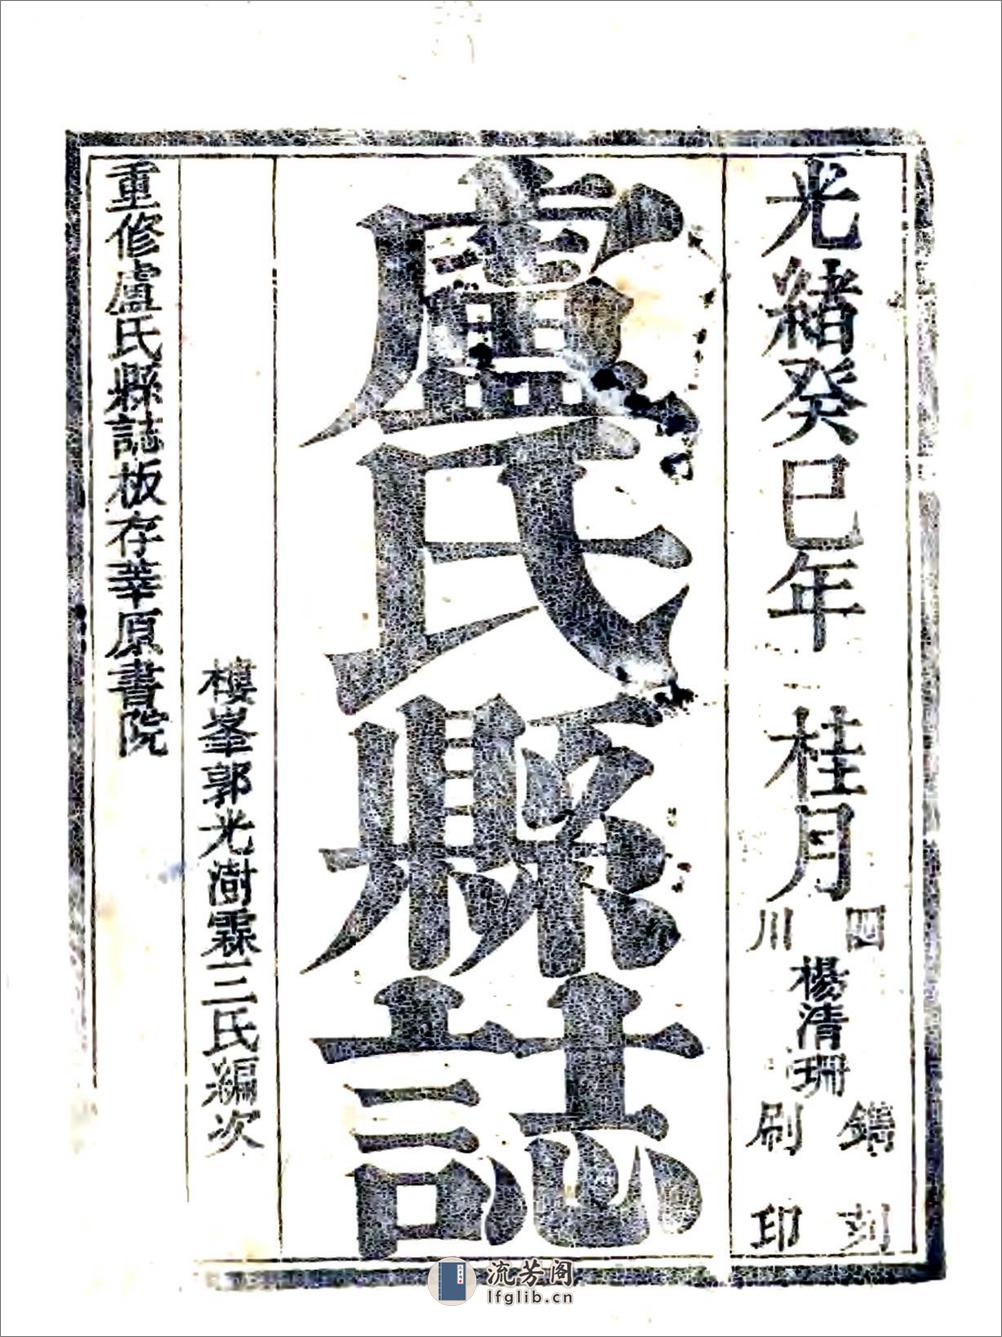 光緒癸巳年 桂月
四川
楊清珊
鐫刻
刷印
盧氏縣誌
樓峯郭光澍霖三氏編次
重修盧氏縣誌板存莘原書院
流芳阁
lfglib.cn